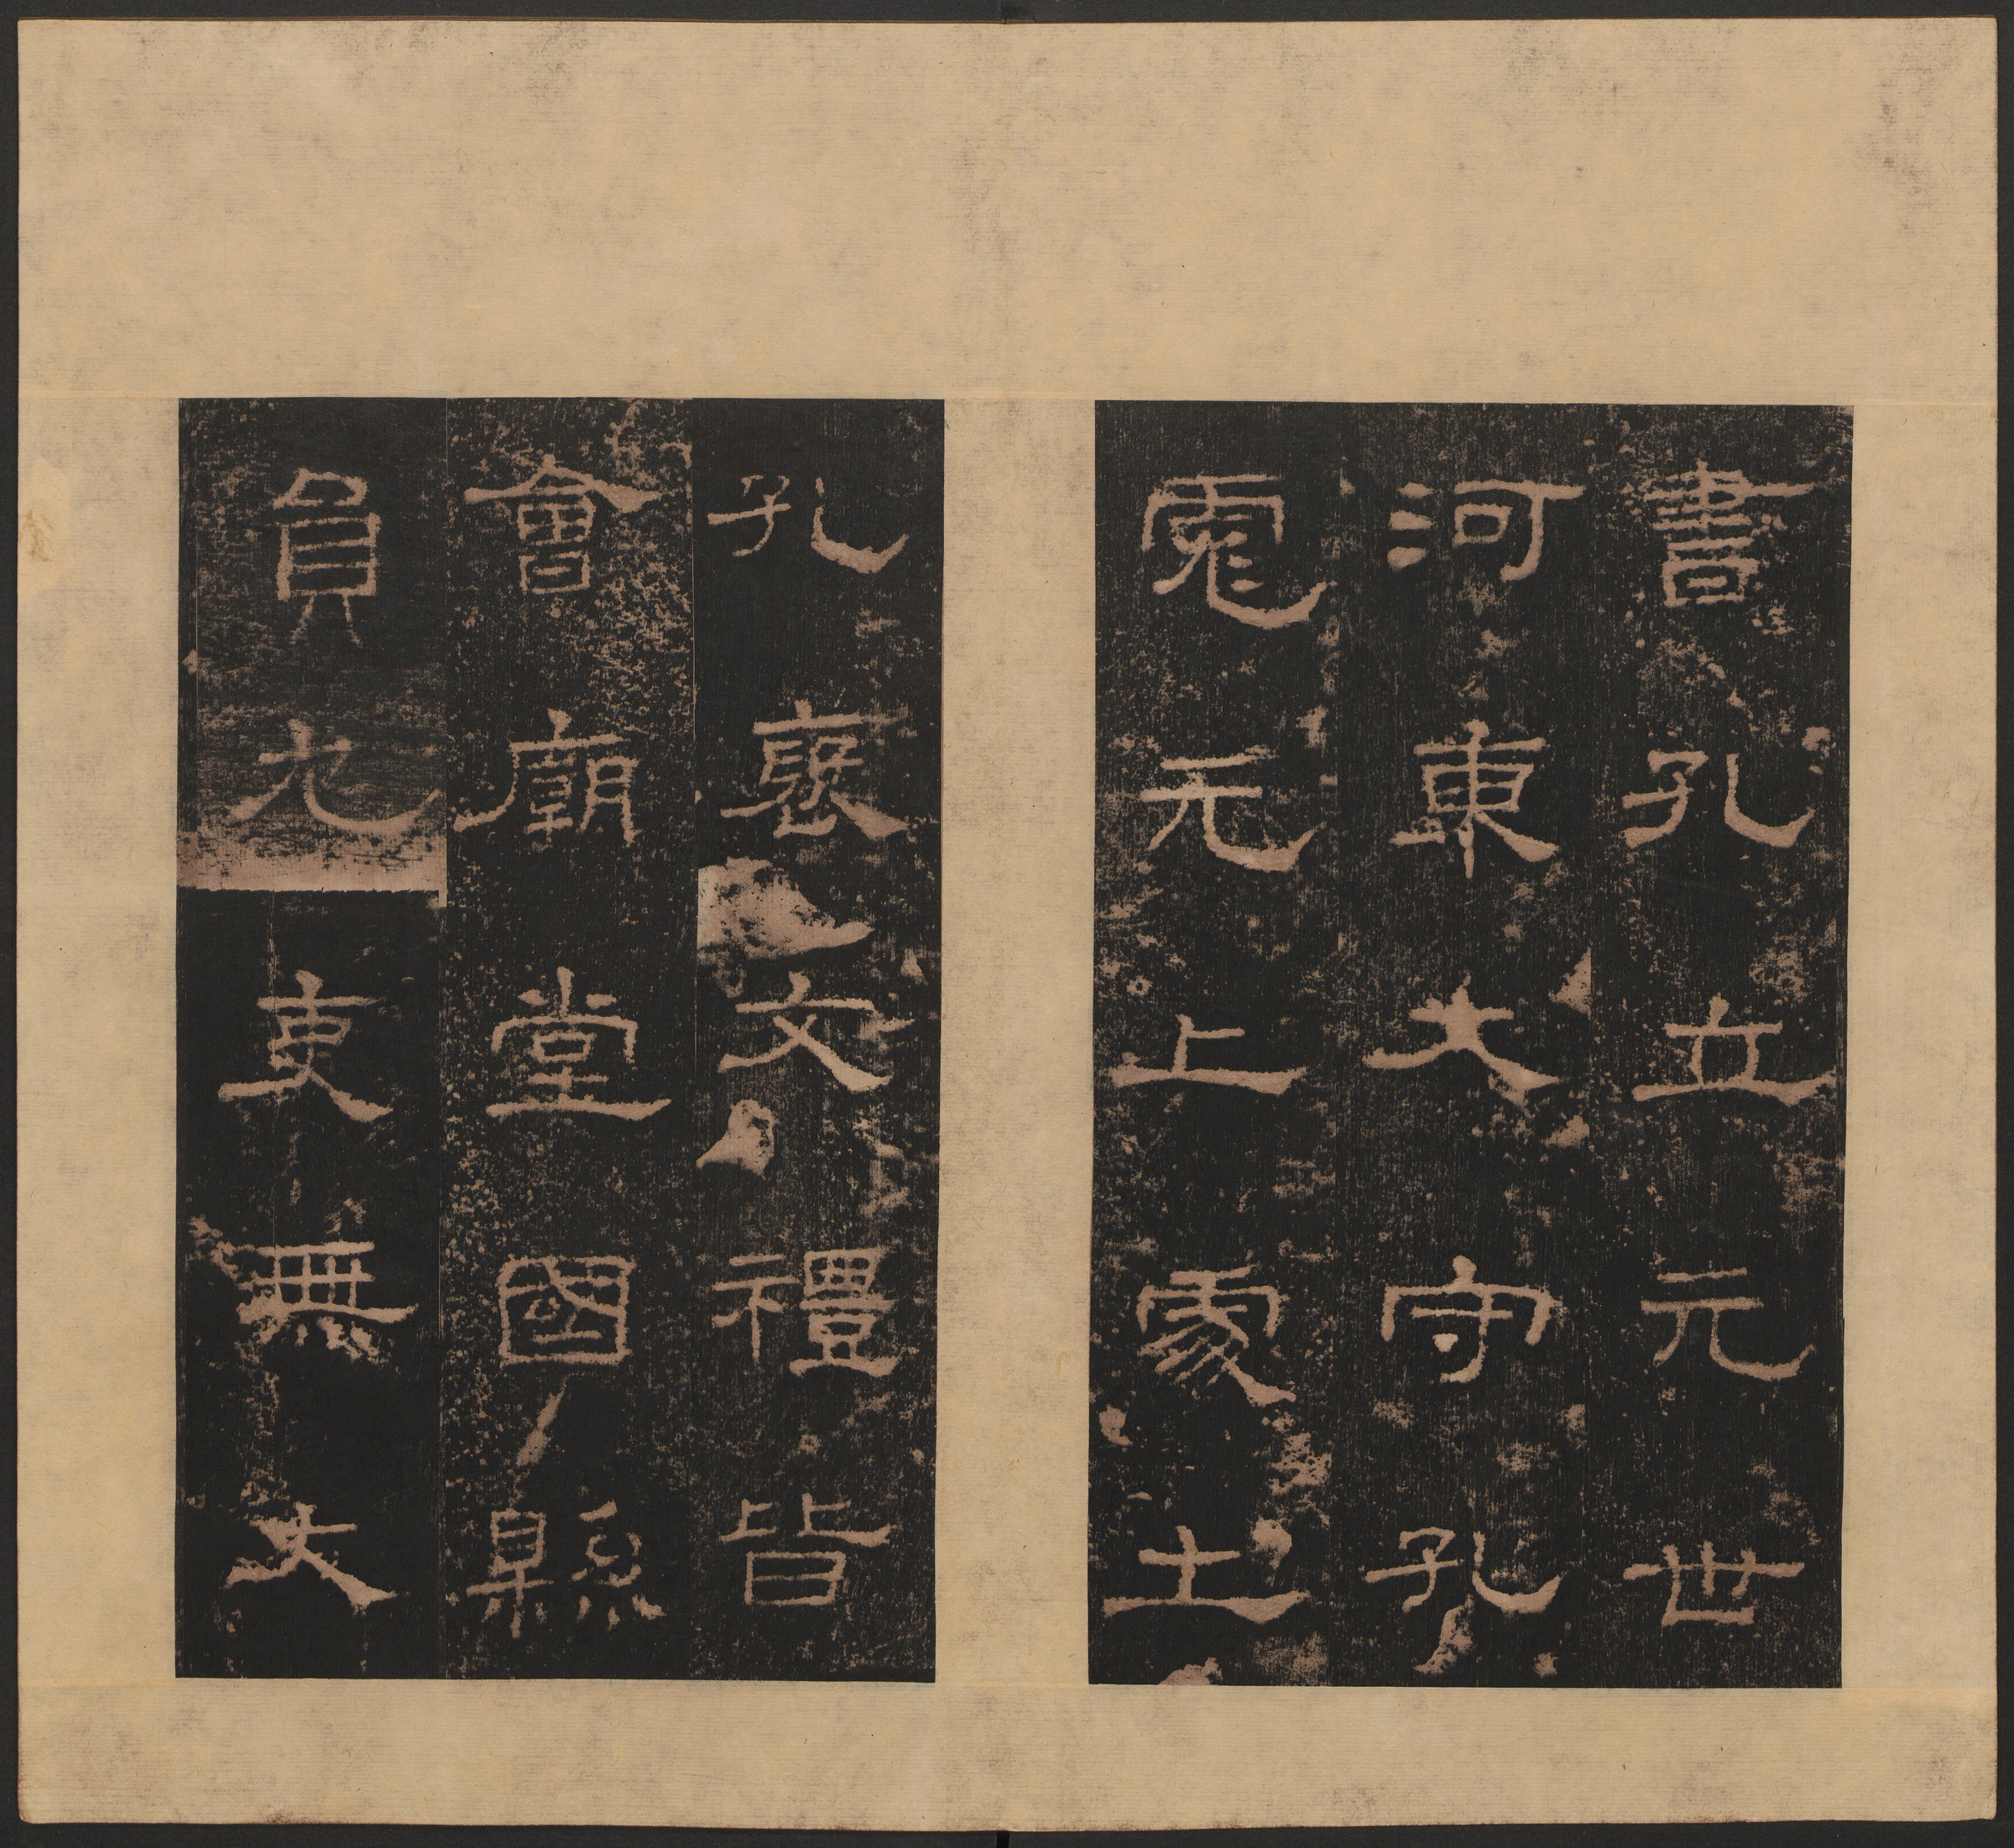 書孔立元世
河東大守孔
彪元上處士
孔褒文禮皆
會廟堂國縣
員冗吏無大